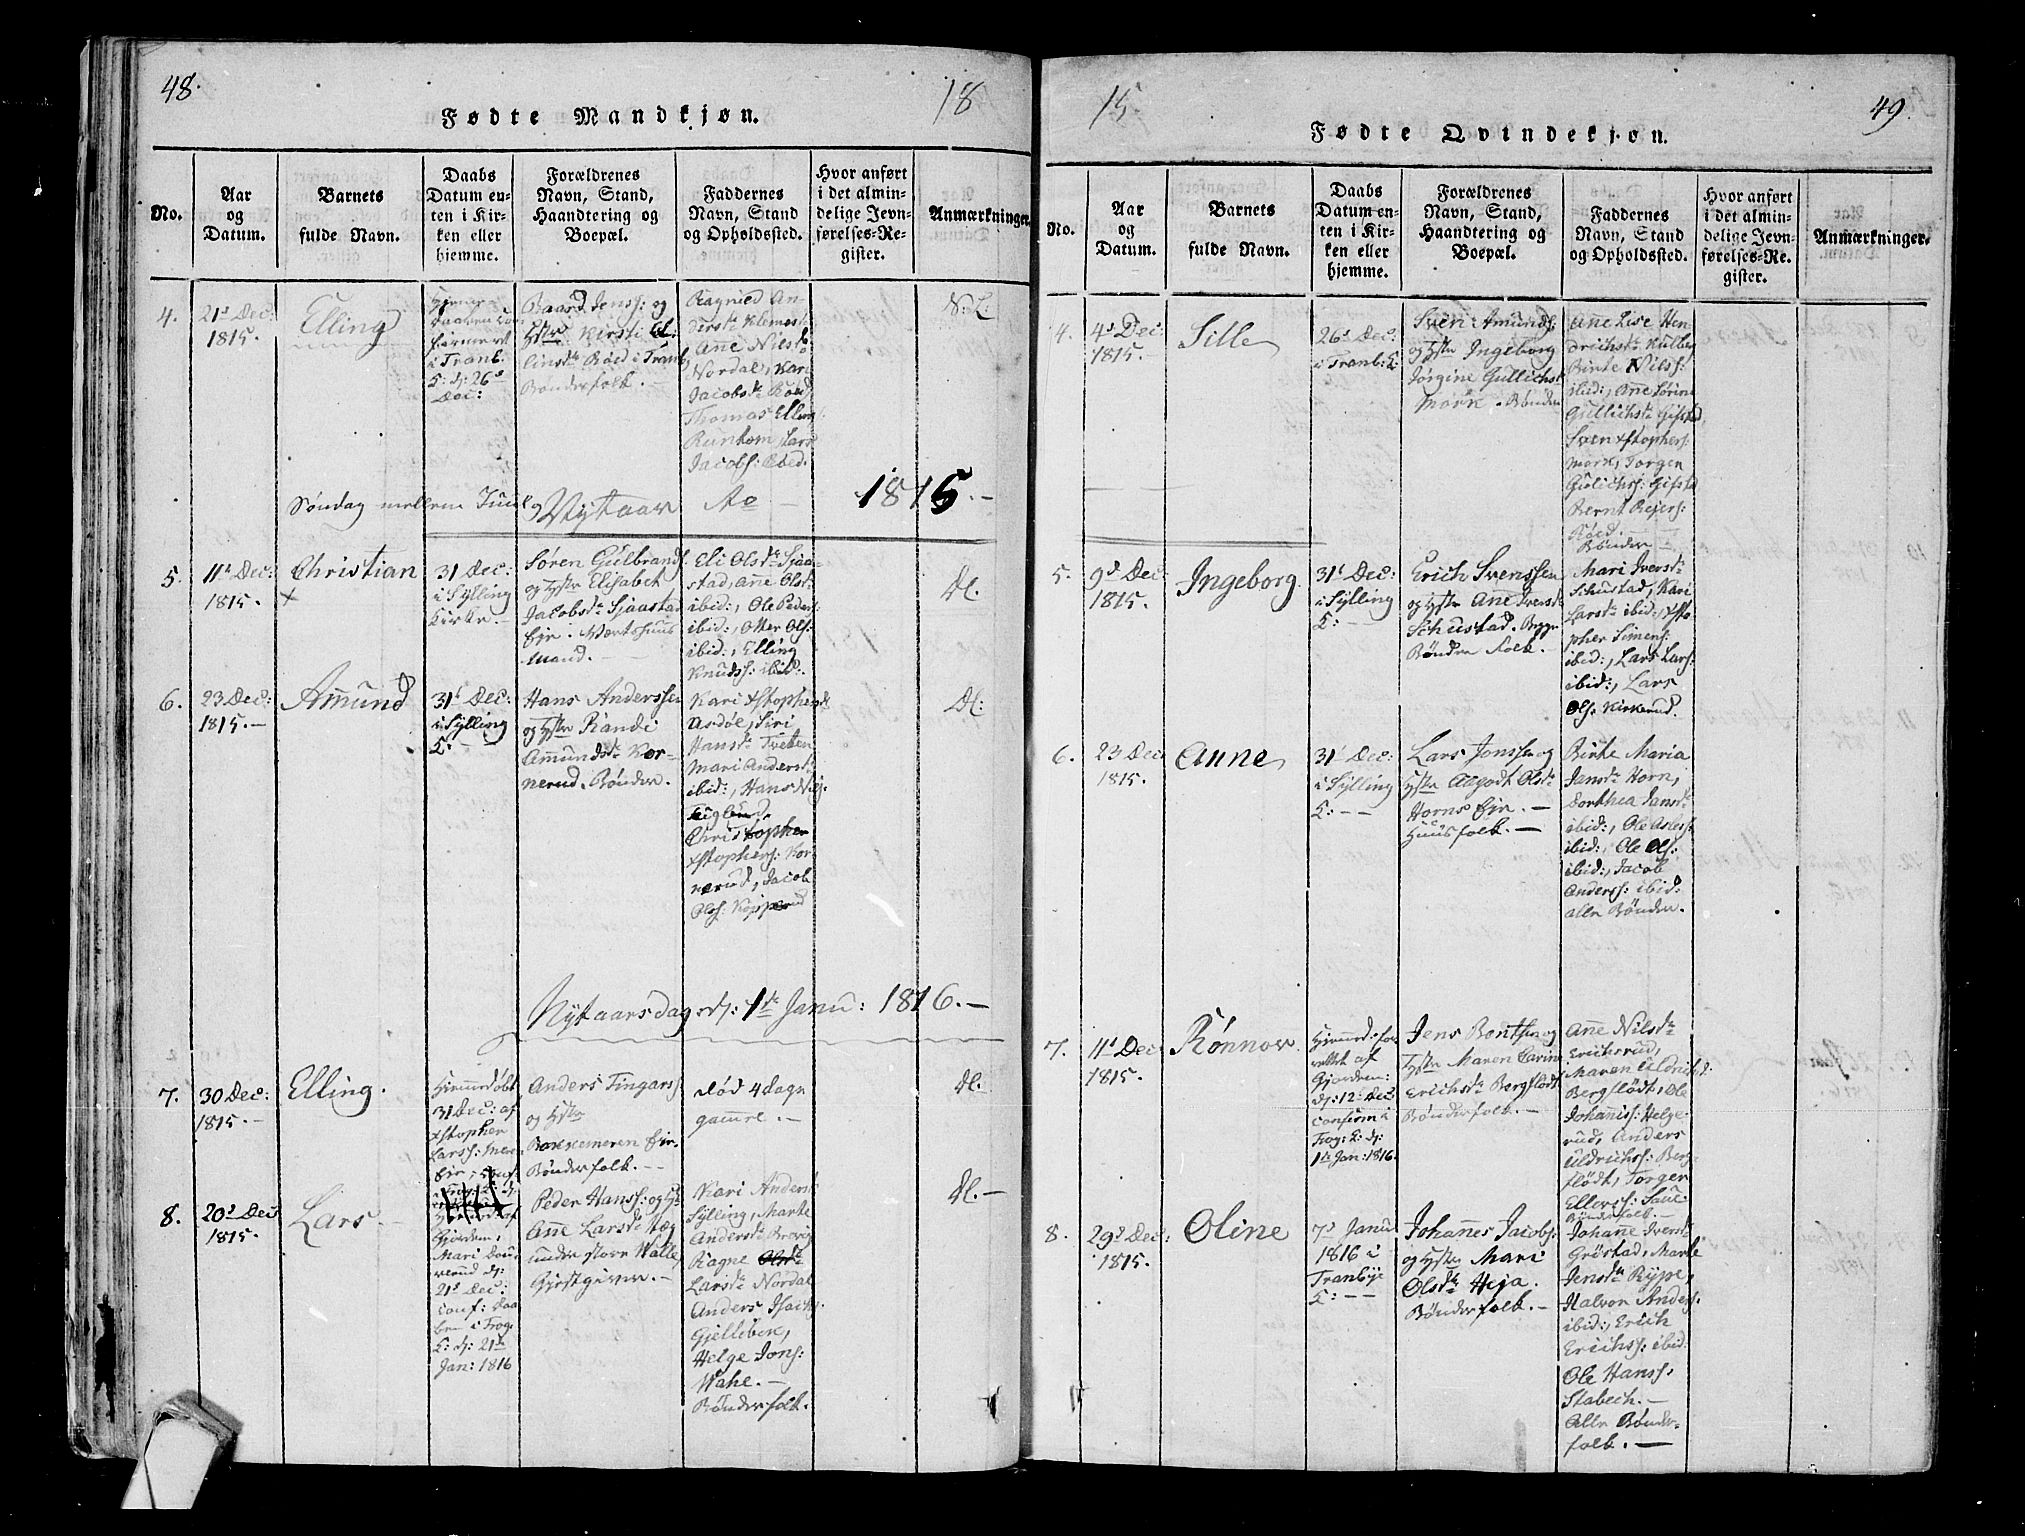 48.
18
Fødte Mandkjøn.
No.
Aar
og
Datum.
Barnets
fulde Navn.
Daabs
Datum en-
ten i Kir-
ken eller
hjemme.
Forældrenes
Navn, Stand,
Haandtering og
Boepæl.
Faddernes
Navn, Stand
og Opholdssted.
Hvor anført
i det almin-
delige Jevn-
førelses-Re-
gister.
Anmærkninger.
4.
21de Dec:
1815.
Elling
i Tranb:
K: d: 26de
Dec:
Baard Jens: og
Kirsti El-
linsdtr Røed i Tranb.
Bønderfolk.
Ragnied An-
dersdtr Klemest
Anne Nilsd
Nordal, Kari
Jacobsdtr Røed
Thomas Elling
Runtom, Lars
Jacobs: Ebed.
N. L:
Søndag mellem Juul og Nytaar Ao 1815.
5.
11te Dec:
1815.
Christian
x
31 Dec:
i Sylling
Kirke.
Søren Gulbrands
og Hstr Elisabeth
Jacobsdtr Sjaastad
Ejr. Værtshuus
mand.
Eli Olsdtr Sjaa-
stad, Ane Olsd:
ibid:, Ole Peders:
ibid:, Otter Ols:
ibid:, Elling
Knuds: ibid:
Dl.
6.
23 Dec:
1815.
Amund
31te Dec:
i Sylling
K:
Hans Anderssen
og Hstr Randi
Amundsdtr Kor-
nerud. Bønder.
Kari xstophersd
Asdøl, Siri
Hansdtr Tveten
Mari Andersd:
ibid:, Hans Nil:
Christopher
xstophers: Kor-
nerud, Jacob
Ols: Kopperud
Dl:
Nytaarsdag d: 1te Janu: 1816.
7.
30 Dec:
1815.
Elling.
Hiemmedøbt
31 Dec: af
xstopher
Lars: Meren
Ejr.
Anders Tingars:
og Hstr
Bakkemeren Ejr.
Bønderfolk.
Død 4 dage
gammel.
Dl.
8.
20de Dec
1815.
Lars
Mari Dou-
nerud d:
21de Dec:
conf: Daa-
ben i Frog.
K: d: 21de
Jan: 1816
Peder Hans: og Hs
Anne Larsdtr Læg
under store Walle
Gjestgiver.
Kari Anders
Sylling, Marte
Andersdtr
Ragne Olsdtr
Larsdtr Nordal
Anders Isachs:
Gjelleben,
Helge Jons:
Wahe.
Bønderfolk.
Dl.
15
49.
Fødte Qvindekjøn.
No.
Aar
og
Datum.
Barnets
fulde Navn.
Daabs
Datum en-
ten i Kir-
ken eller
hjemme.
Forældrenes
Navn, Stand,
Haandtering og
Boepæl.
Faddernes
Navn, Stand
og Opholdssted.
Hvor anført
i det almin-
delige Jevn-
førelses-Re-
gister.
Anmærkninger.
4.
4de Dec:
1815.
Sille
26de Dec:
i Tranb: K
Sven Amunds:
og Hstr Ingeborg
Jørgine Gullichsd
Mørk. Bønder
Anne Lise Hen-
drichsdtr
Birte Nils:
ibid:, Ane Sørin
Gullichsdtr Gifstad
Sven xstophers:
Mørk, Torgen
Gulichs: Gifstad
Bernt Rejers:
Røed.
Bønder
5.
9de Dec:
1815.
Ingeborg.
31te Dec:
i Sylling
K:
Erich Svenssen
og Hstr Ane Iversd
Schustad. Bygs
Bønder folk.
Mari Iversdtr
Schustad, Kari
Larsdtr ibid:, xsto
pher Simens:
ibid:, Lars Lars:
ibid:, Lars
Ols. Kirkerud.
6.
23 Dec
1815.
Anne
31te Dec:
i Sylling
K:
Lars Jonssen og
Hstr Aagodt Olsdtr
Horns Ejr.
Huusfolk.
Birte Maria
Jensdtr Horn,
Dorthea Jensdtr
ibid:, Ole Asles:
ibid:, Ole Ols:
ibid:, Jacob
Anderss: ibid:
alle Bønder.
7.
11te Dec:
1815.
Rønnov
Gjordem:
d: 12: Dec
confirm i
Frog: K: d:
1te Jan: 1816.
Jens Bentsen og
Hstr Maren Carine
Erichsdtr Bergflødt
Bønderfolk.
Anne Nilsdtr
Erichsrud,
Maren Uldrichsd:
Bergflødt, Ole
Johaniss: Helge-
rud, Anders
Uldrichss: Berg-
flødt, Torger
Ellevs:
Bønderfolk.
8.
29de Dec:
1815.
Oline
7de Janu
1816 i
Tranbye
K:
Johannes Jacobs:
og Hstr Mari
Olsdtr Heja.
Bønderfolk.
Johane Iversdtr
Grøstad, Marte
Jensdtr Rype,
Halvor Anders:
ibid:, Erich
Erichss: ibid:
Ole Hanss:
Stabech.
Alle Bønder-
folk.